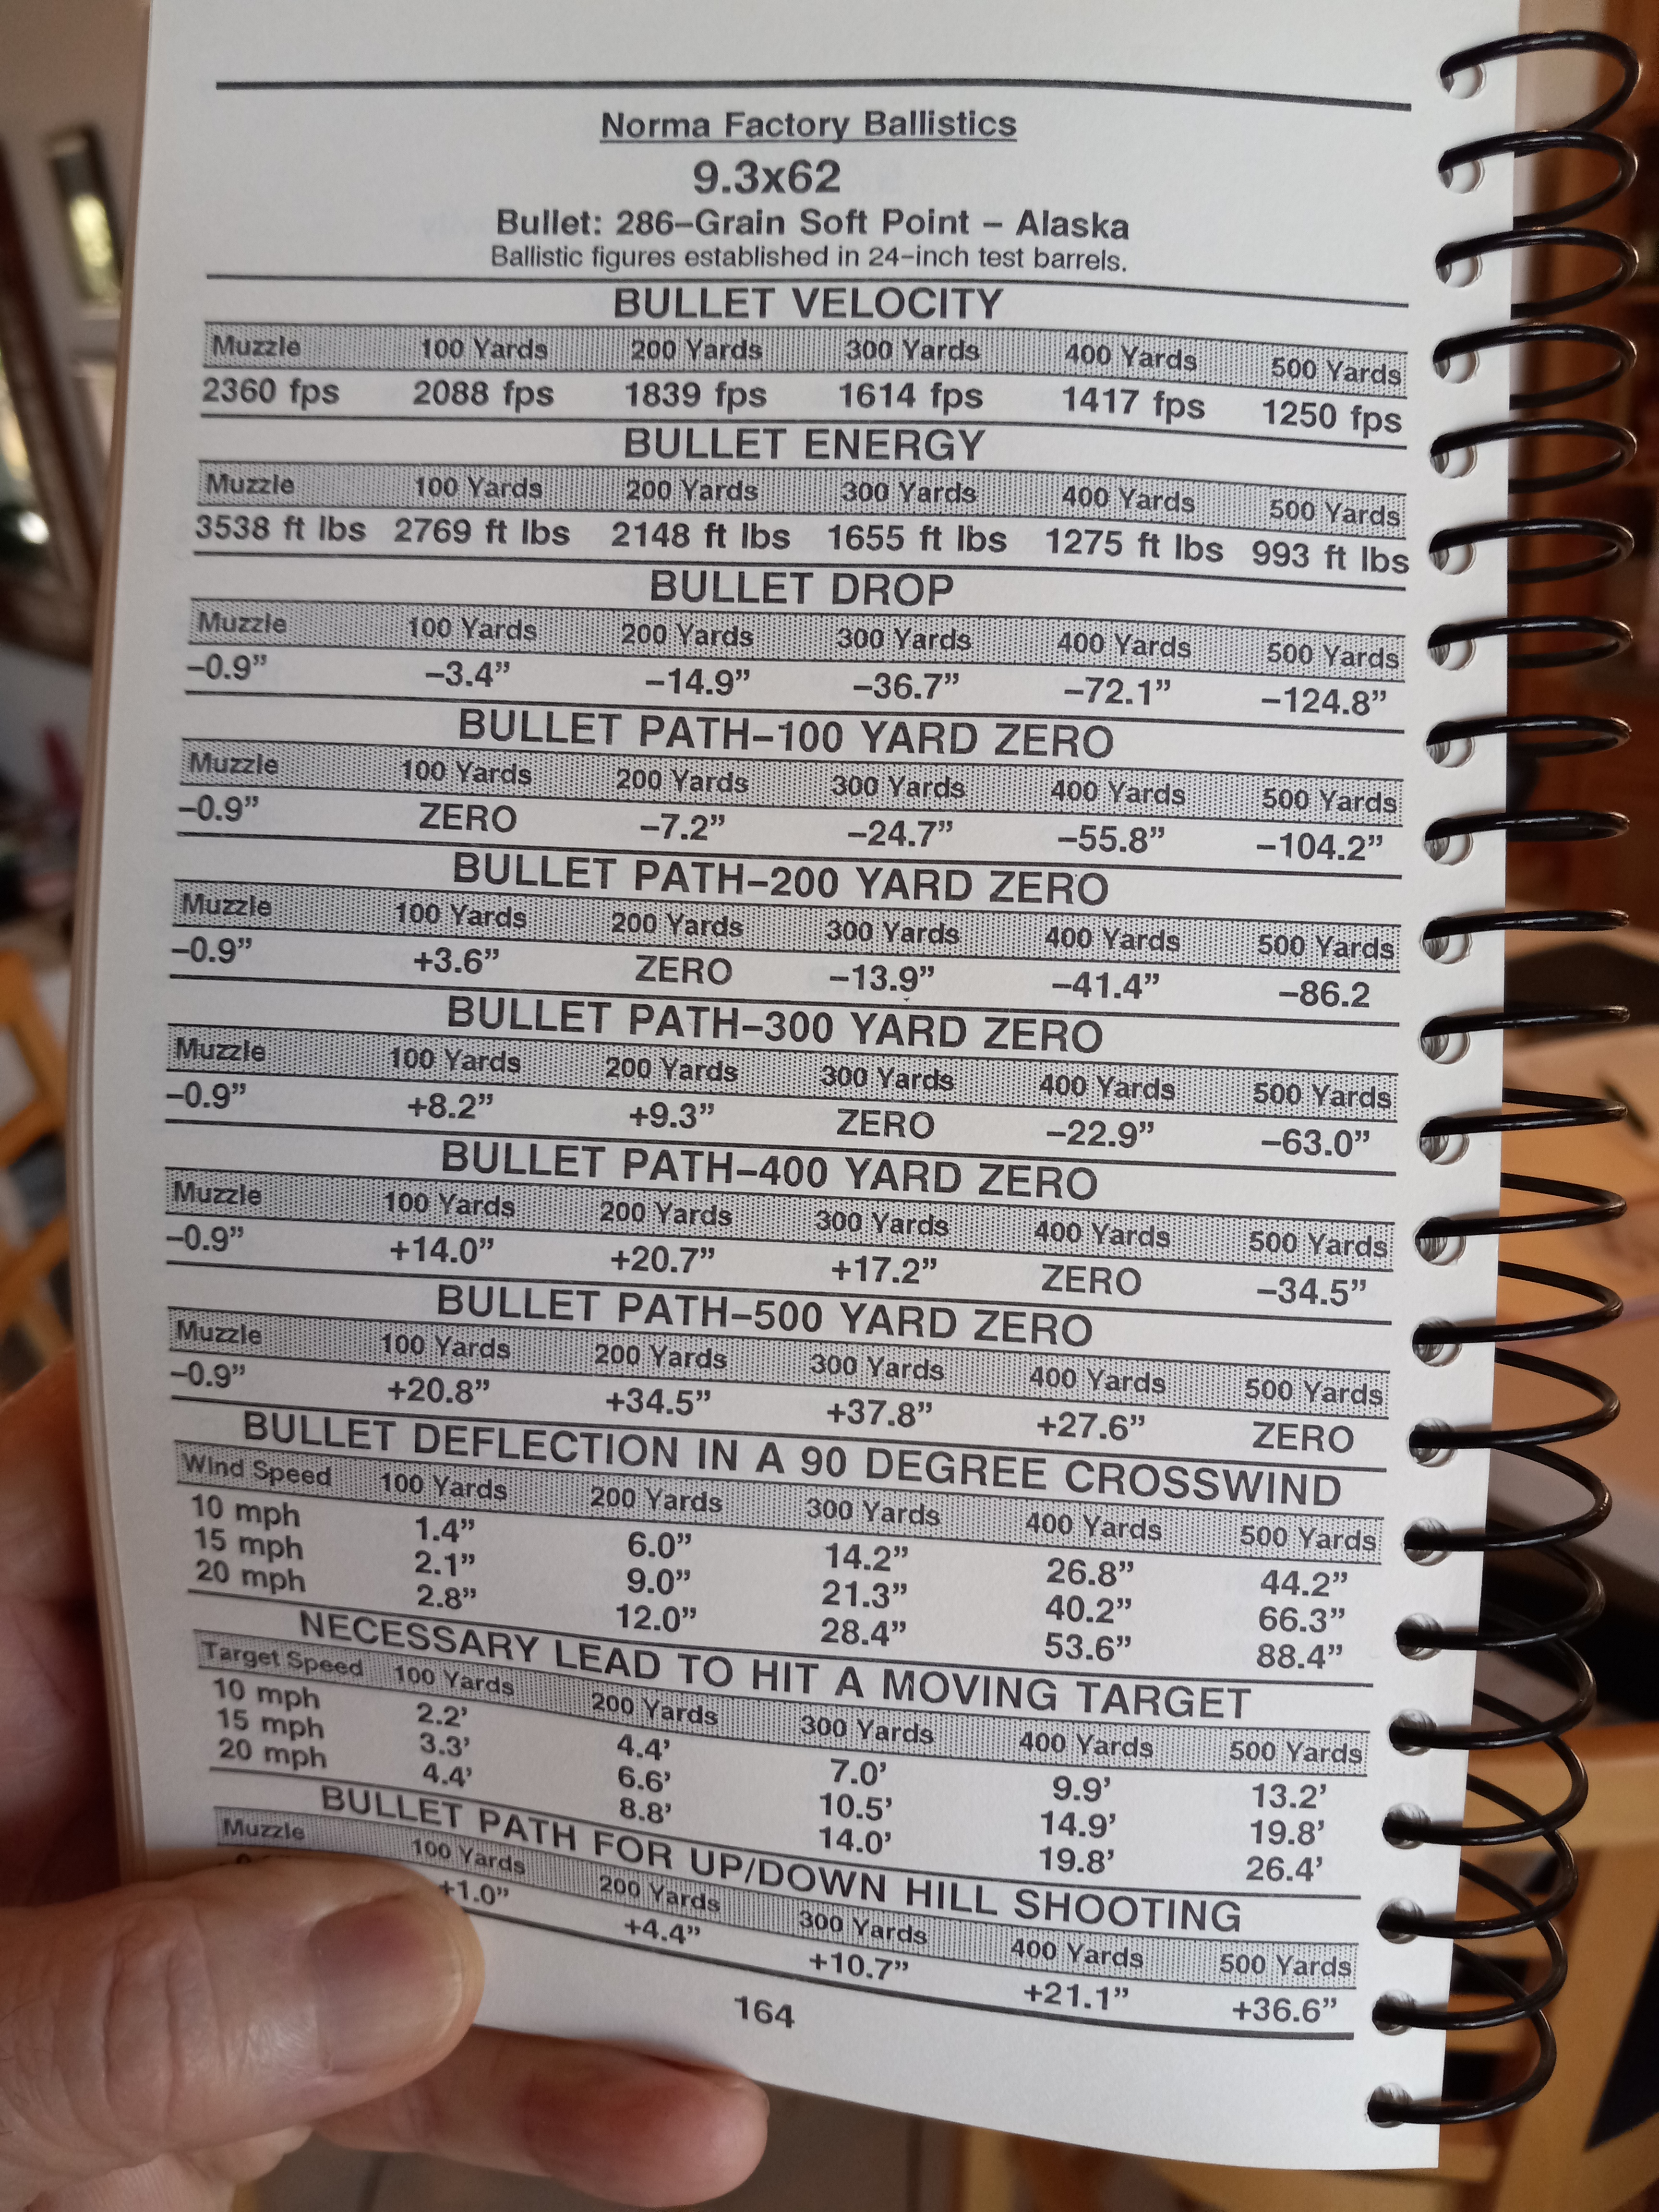 Norma Factory Ballistics
9.3x62
Bullet: 286–Grain Soft Point – Alaska
Ballistic figures established in 24–inch test barrels.
BULLET VELOCITY
Muzzle 100 Yards 200 Yards 300 Yards 400 Yards 500 Yards
2360 fps 2088 fps 1839 fps 1614 fps 1417 fps 1250 fps
BULLET ENERGY
Muzzle 100 Yards 200 Yards 300 Yards 400 Yards 500 Yards
3538 ft lbs 2769 ft lbs 2148 ft lbs 1655 ft lbs 1275 ft lbs 993 ft lbs
BULLET DROP
Muzzle 100 Yards 200 Yards 300 Yards 400 Yards 500 Yards
–0.9” –3.4” –14.9” –36.7” –72.1” –124.8”
BULLET PATH–100 YARD ZERO
Muzzle 100 Yards 200 Yards 300 Yards 400 Yards 500 Yards
–0.9” ZERO –7.2” –24.7” –55.8” –104.2”
BULLET PATH–200 YARD ZERO
Muzzle 100 Yards 200 Yards 300 Yards 400 Yards 500 Yards
–0.9” +3.6” ZERO –13.9” –41.4” –86.2
BULLET PATH–300 YARD ZERO
Muzzle 100 Yards 200 Yards 300 Yards 400 Yards 500 Yards
–0.9” +8.2” +9.3” ZERO –22.9” –63.0”
BULLET PATH–400 YARD ZERO
Muzzle 100 Yards 200 Yards 300 Yards 400 Yards 500 Yards
–0.9” +14.0” +20.7” +17.2” ZERO –34.5”
BULLET PATH–500 YARD ZERO
Muzzle 100 Yards 200 Yards 300 Yards 400 Yards 500 Yards
–0.9” +20.8” +34.5” +37.8” +27.6” ZERO
BULLET DEFLECTION IN A 90 DEGREE CROSSWIND
Wind Speed 100 Yards 200 Yards 300 Yards 400 Yards 500 Yards
10 mph 1.4” 6.0” 14.2” 26.8” 44.2”
15 mph 2.1” 9.0” 21.3” 40.2” 66.3”
20 mph 2.8” 12.0” 28.4” 53.6” 88.4”
NECESSARY LEAD TO HIT A MOVING TARGET
Target Speed 100 Yards 200 Yards 300 Yards 400 Yards 500 Yards
10 mph 2.2’ 4.4’ 7.0’ 9.9’ 13.2’
15 mph 3.3’ 6.6’ 10.5’ 14.9’ 19.8’
20 mph 4.4’ 8.8’ 14.0’ 19.8’ 26.4’
BULLET PATH FOR UP/DOWN HILL SHOOTING
Muzzle 100 Yards 200 Yards 300 Yards 400 Yards 500 Yards
+1.0” +4.4” +10.7” +21.1” +36.6”
164